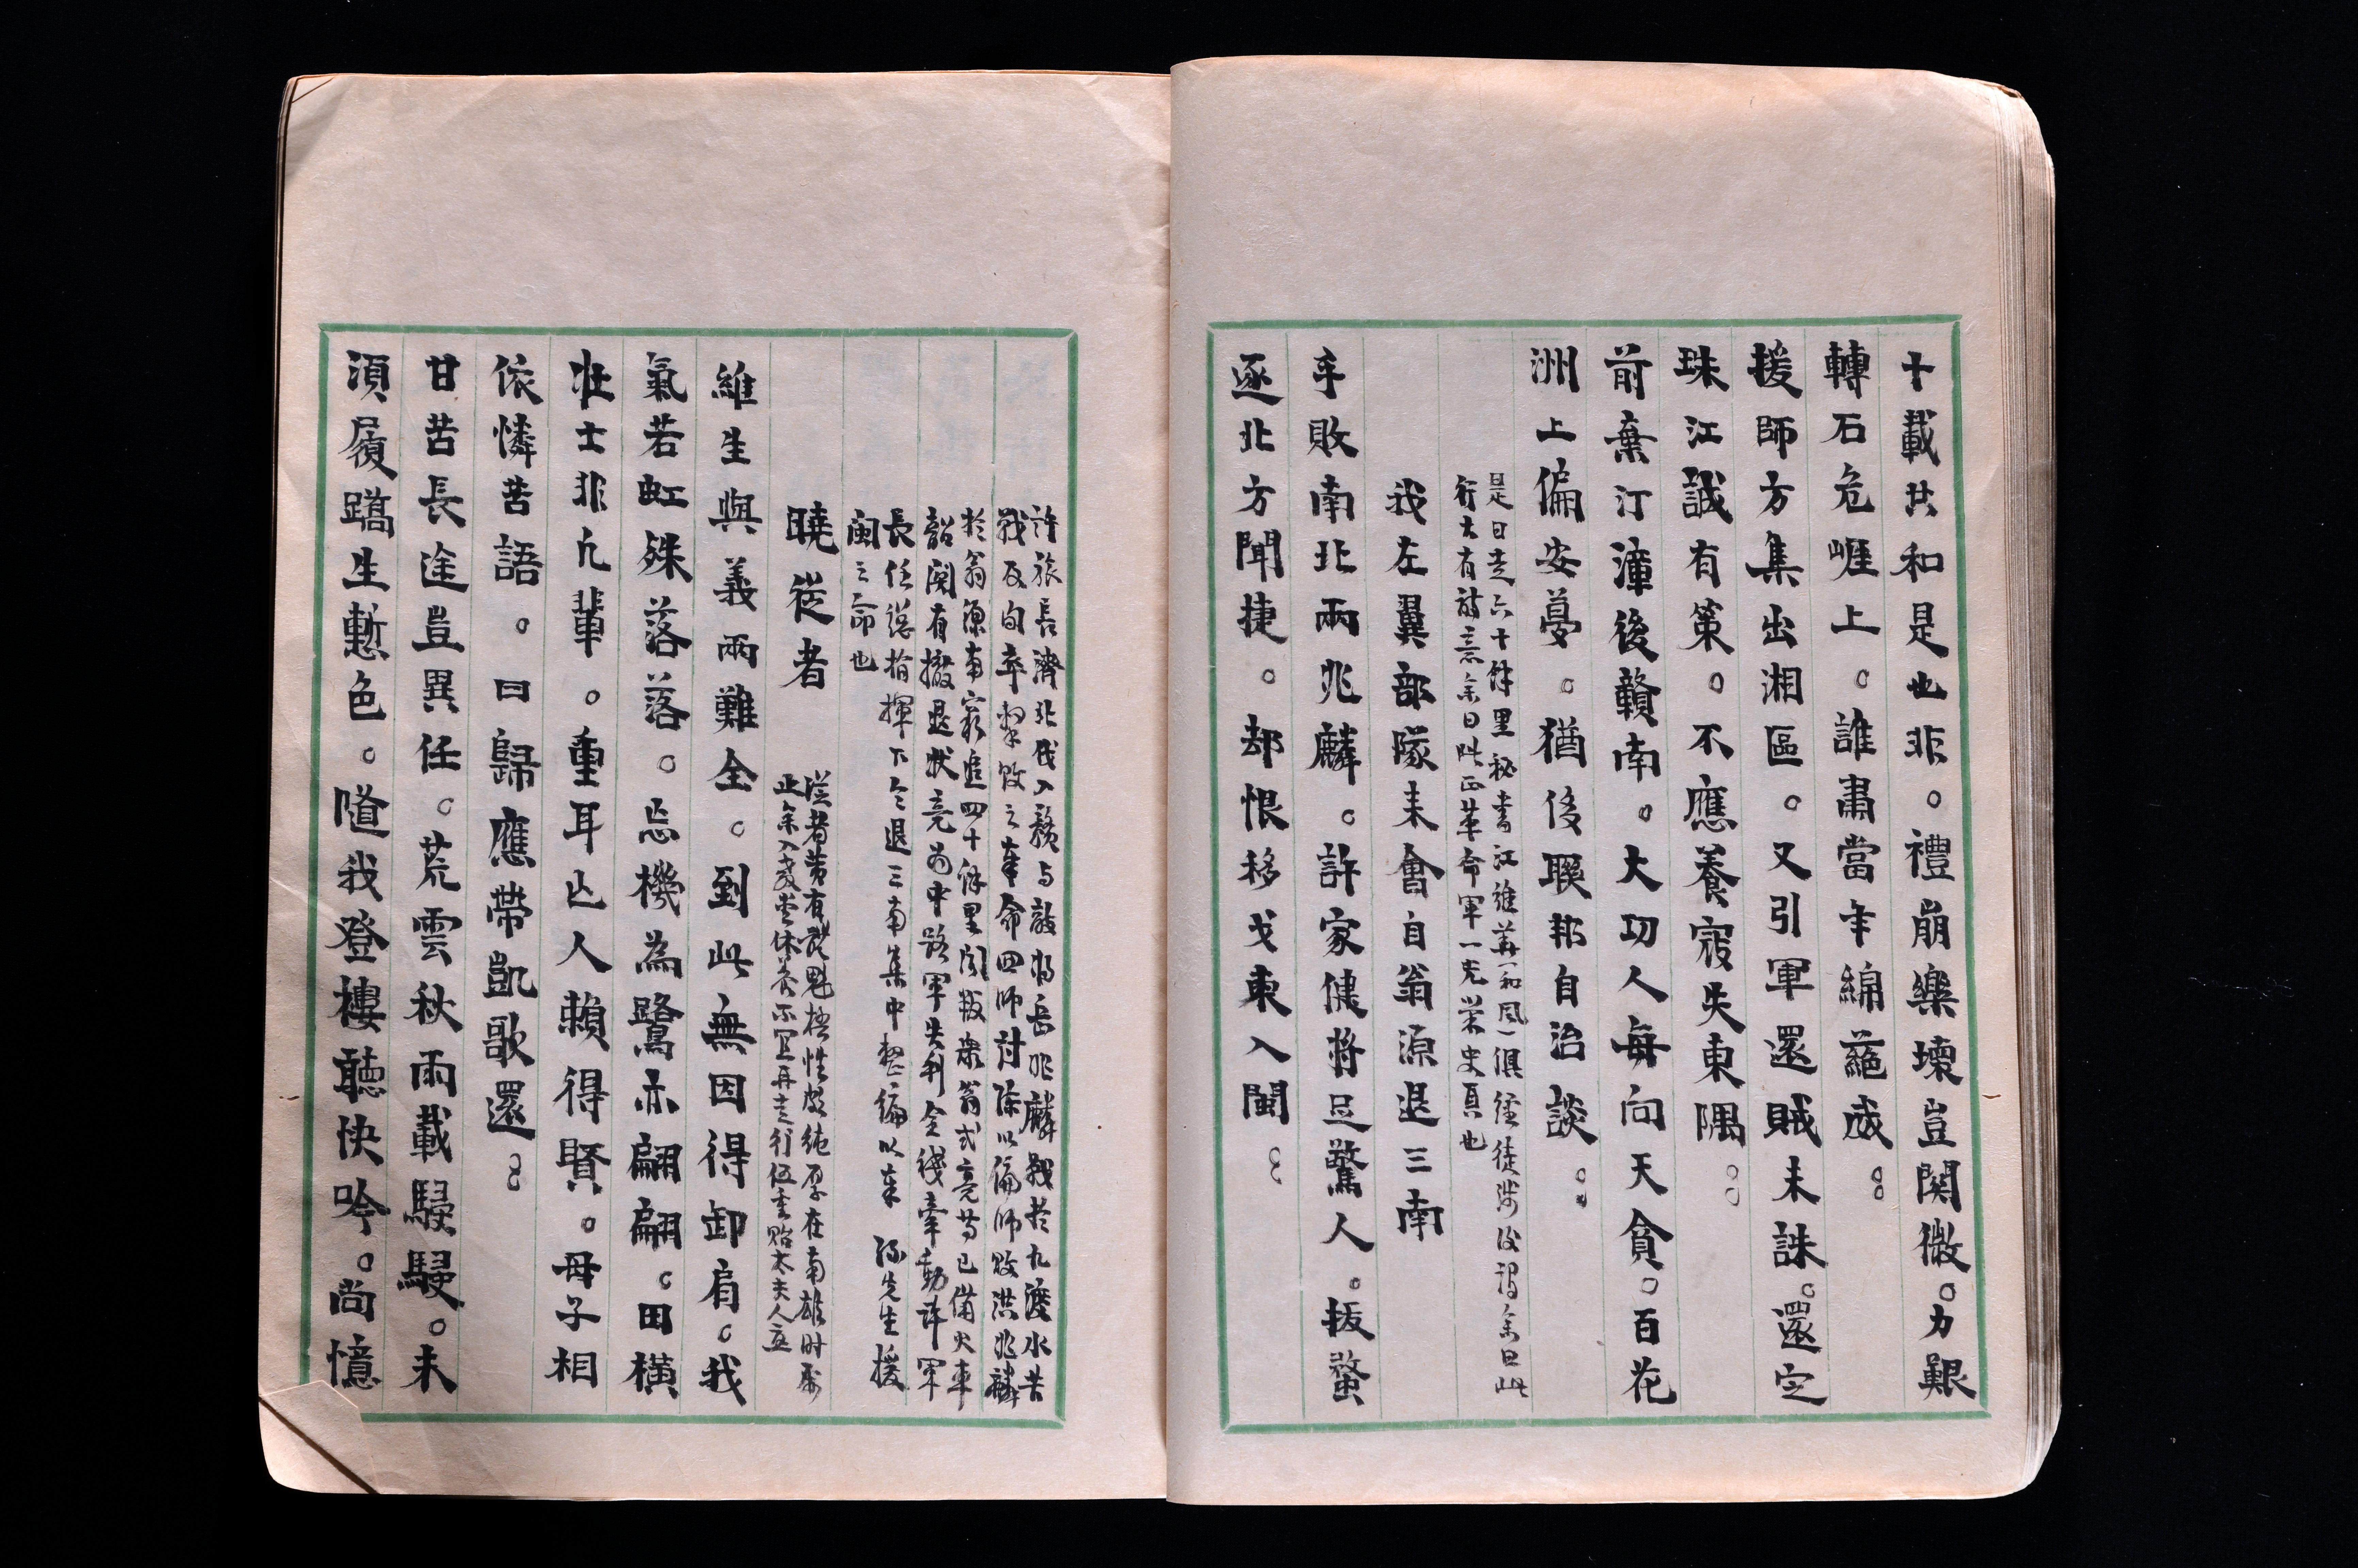 十載共和是也非。禮崩樂壞豈関微。力艱
轉石危崕上。誰肅當年綿蕝威。
援師方集出湘區。又引軍還賊未誅。還定
珠江誠有策。不應養寇失東隅。
前棄汀漳後贛南。大功人每向天貪。百花
洲上偏安夢。猶侈聯邦自治談。
是日走六十餘里秘書江維華和風俱徒涉後謂余曰此
行大有詩意余曰此正革命軍一光榮史頁也
我左翼部隊未會自翁源退三南
手敗南北兩兆麟。許家健將足驚人。拔螯
逐北方聞捷。却恨移戈東入閩。
許旅長濟北伐入贛与敵將岳兆麟戰於九渡水苦
戰五旬卒擊敗之奉命四師討陳以偏師敗洪兆麟
於翁源南窮追四十餘里聞叛衆翁式亮等已備火車
韶関有撤退狀竟为中路軍失利全綫牽動許軍
長任總指揮下令退三南集中整編以奉 孫先生援
閩之命也
曉從者
從者黄有魁梧性成純厚在南雄时
止余入療養休養不宜再走行伍重貽太夫人立
維生與義兩難全。到此無因得卸肩。我
氣若虹殊落落。忘機為鷺亦翩翩。田橫
壯士非凡輩。重耳亡人賴得賢。母子相
依憐苦語。曰歸應帶凱歌還。
甘苦長途豈異任。荒雲秋雨載駸駸。未
湏履蹻生慙色。隨我登樓聽快吟。尚憶